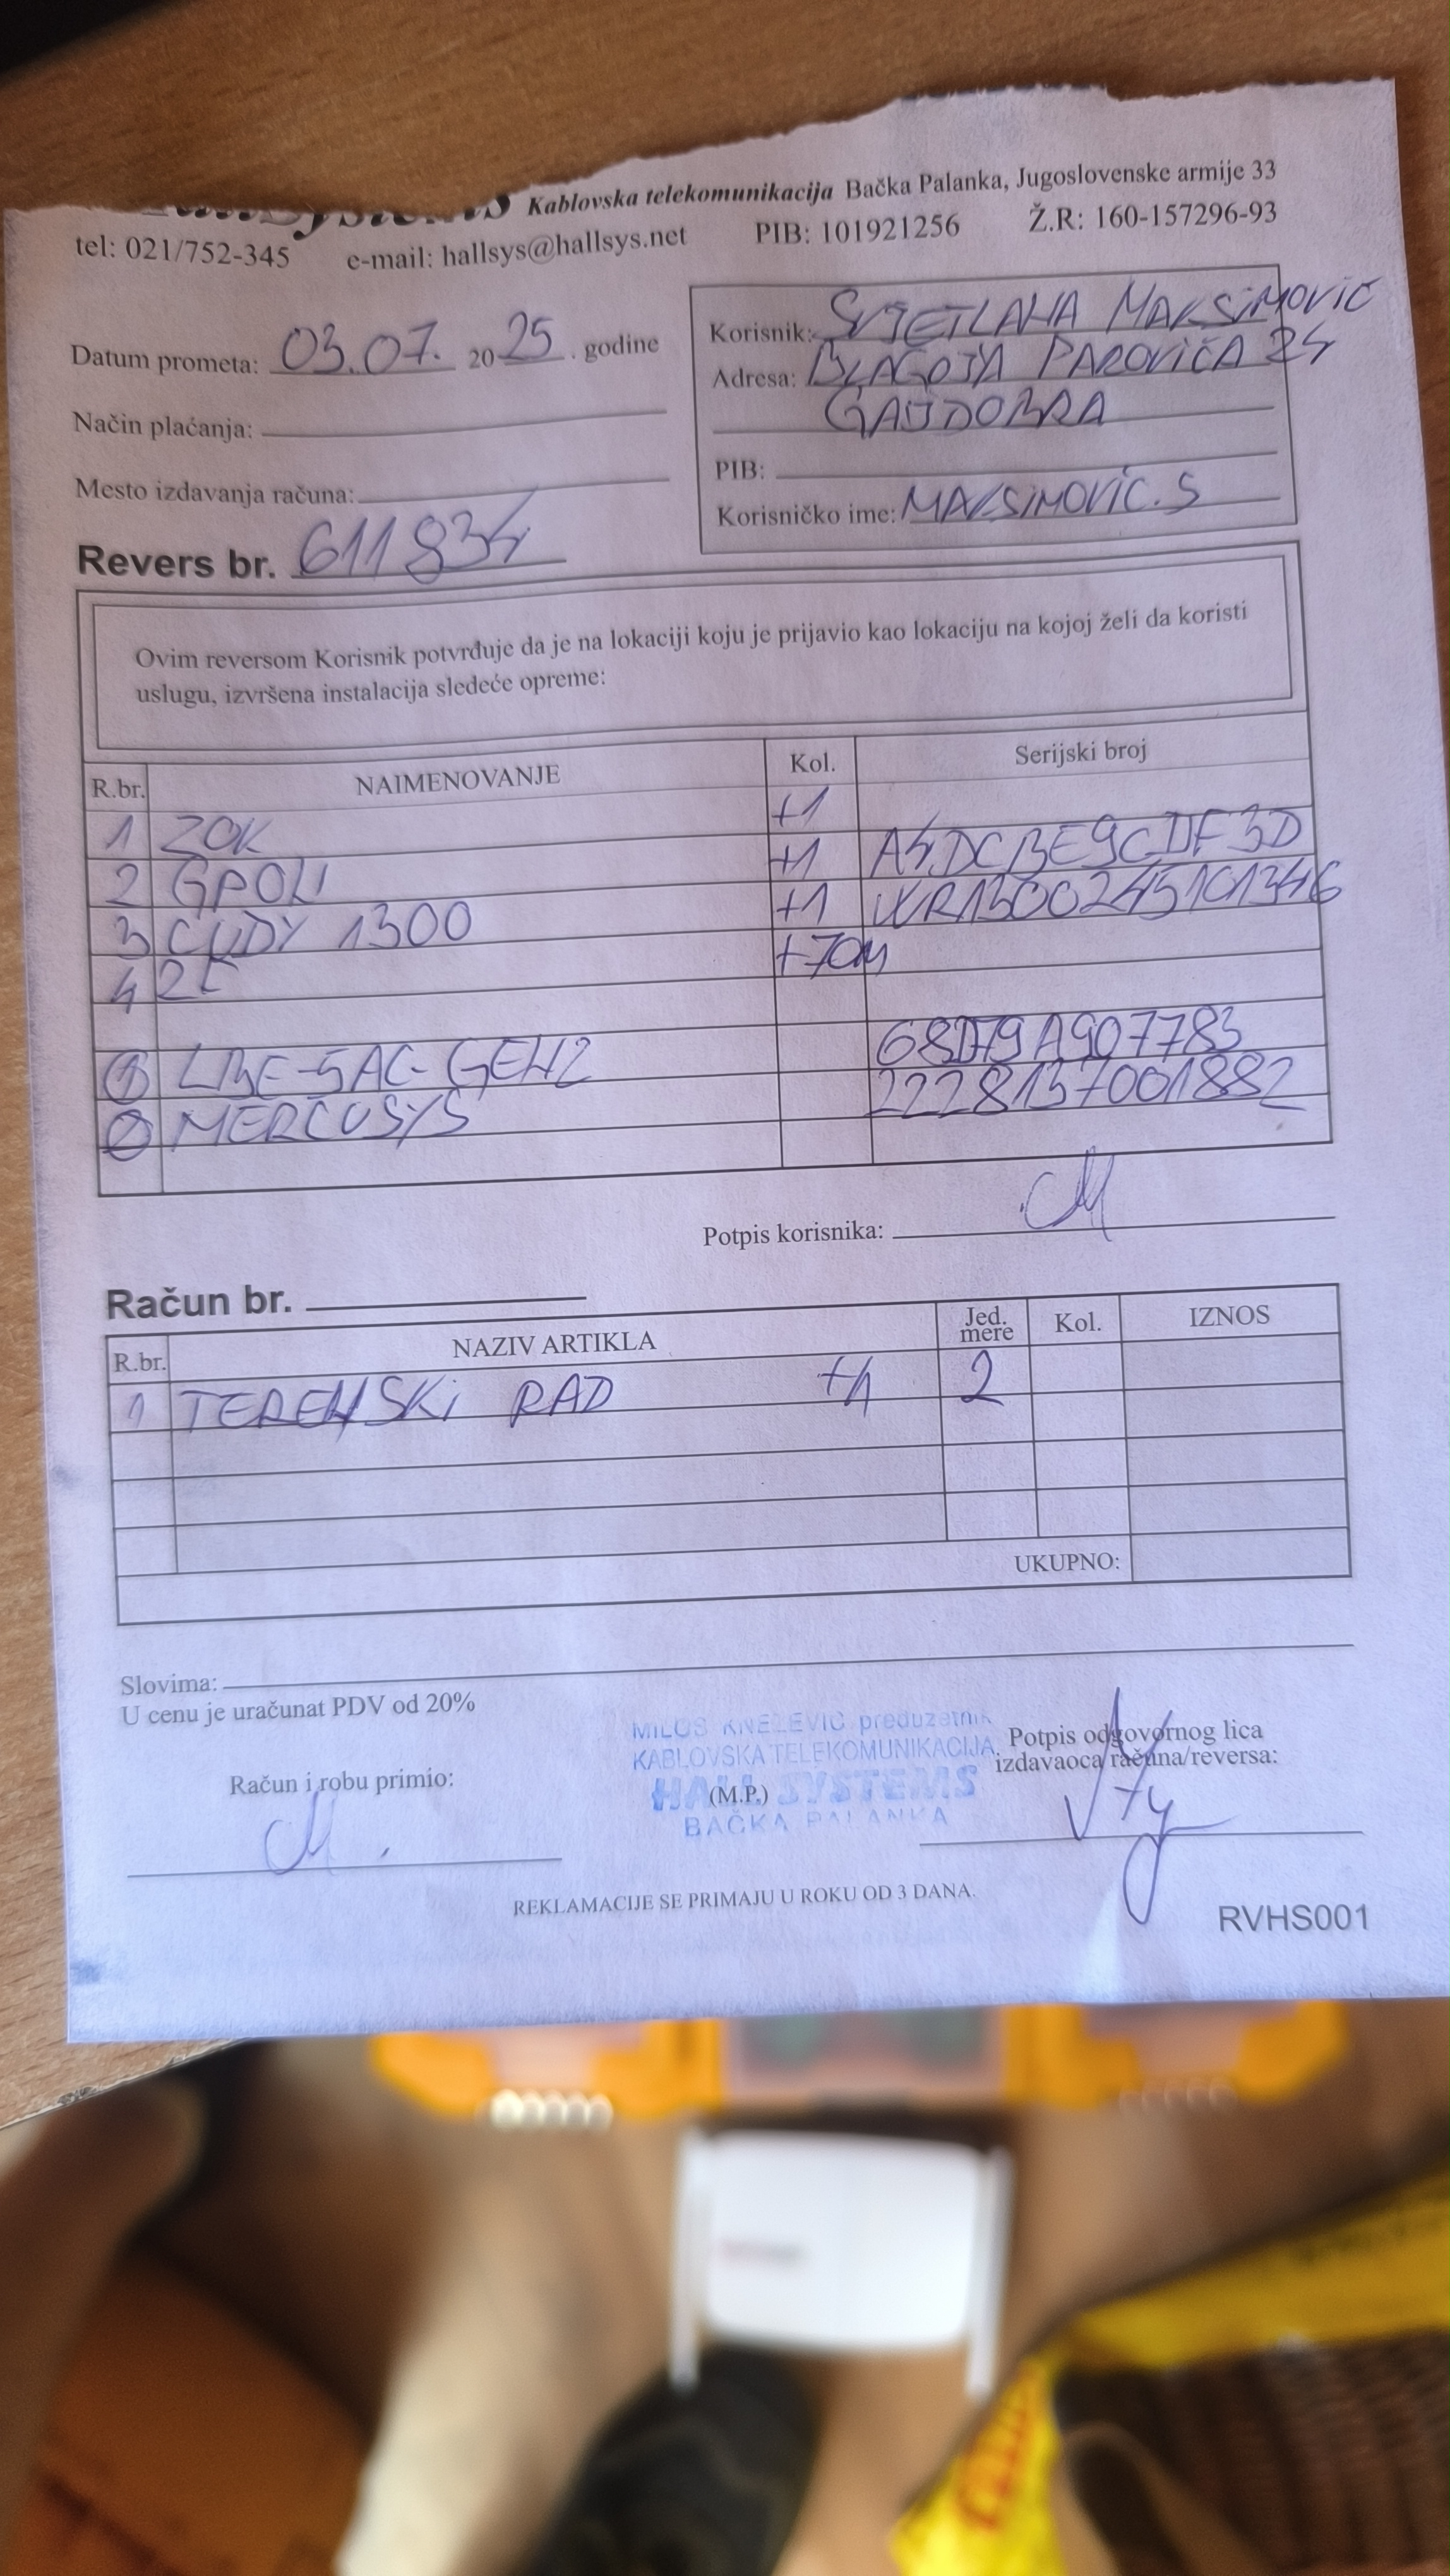 Kablovska telekomunikacija Bačka Palanka, Jugoslovenske armije 33
tel: 021/752-345 e-mail: hallsys@hallsys.net PIB: 101921256 Ž.R: 160-157296-93
Datum prometa: 03.07. 2025. godine
Način plaćanja:
Mesto izdavanja računa:
Revers br. 611834
Korisnik: SVJETLANA MAKSIMOVIĆ
Adresa: BLAGOJA PAROVIĆA 24
GAJDOBRA
PIB:
Korisničko ime: MAKSIMOVIC.S
Ovim reversom Korisnik potvrđuje da je na lokaciji koju je prijavio kao lokaciju na kojoj želi da koristi
uslugu, izvršena instalacija sledeće opreme:
R.br. NAIMENOVANJE Kol. Serijski broj
1 ZOK +1
2 GPON +1 A4DCBE9CDF3D
3 CUDY 1300 +1 WR1300245101346
4 2L +70M
LBE-5AC-GEN2 68D79A907783
MERCUSYS 2228137001882
Potpis korisnika:
Račun br.
R.br. NAZIV ARTIKLA Jed. mere Kol. IZNOS
1 TERENSKI RAD +1 2
UKUPNO:
Slovima:
U cenu je uračunat PDV od 20%
MILOŠ KNEŽEVIĆ preduzetnik
KABLOVSKA TELEKOMUNIKACIJA
HALL SYSTEMS
BAČKA PALANKA
(M.P.)
Račun i robu primio:
Potpis odgovornog lica
izdavaoca računa/reversa:
REKLAMACIJE SE PRIMAJU U ROKU OD 3 DANA.
RVHS001